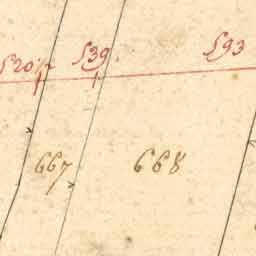 520
539
593
667
668